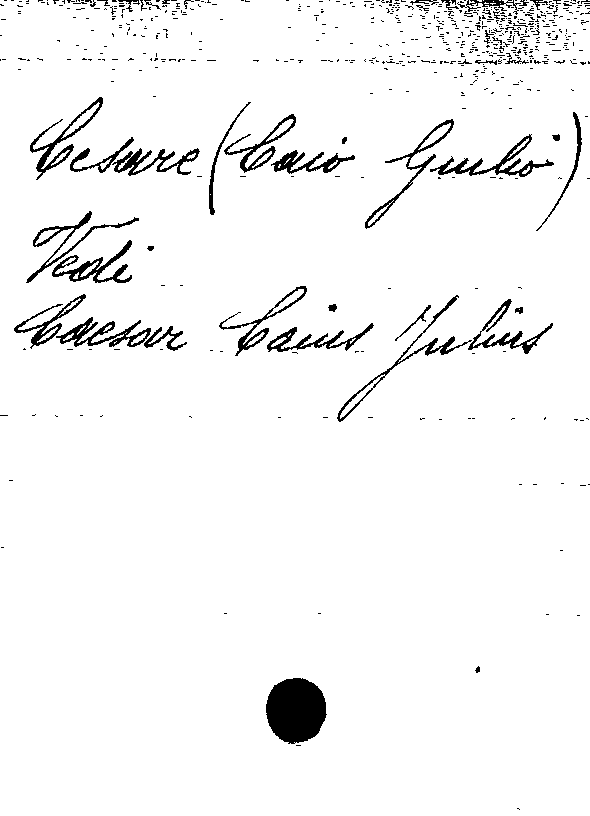 Cesare (Caio Giulio)
Vedi
Caesar Caius Julius